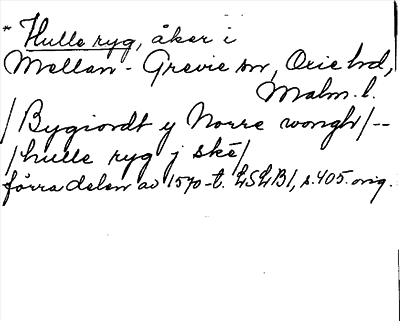 * Hulle ryg, åker i
Mellan-Grevie sn, Oxie hd,
Malm. l.
/Bygiordt y Norre wongh/--
/hulle ryg j ské/
förra delen av 1570-t. LSLB1, s.405. orig.